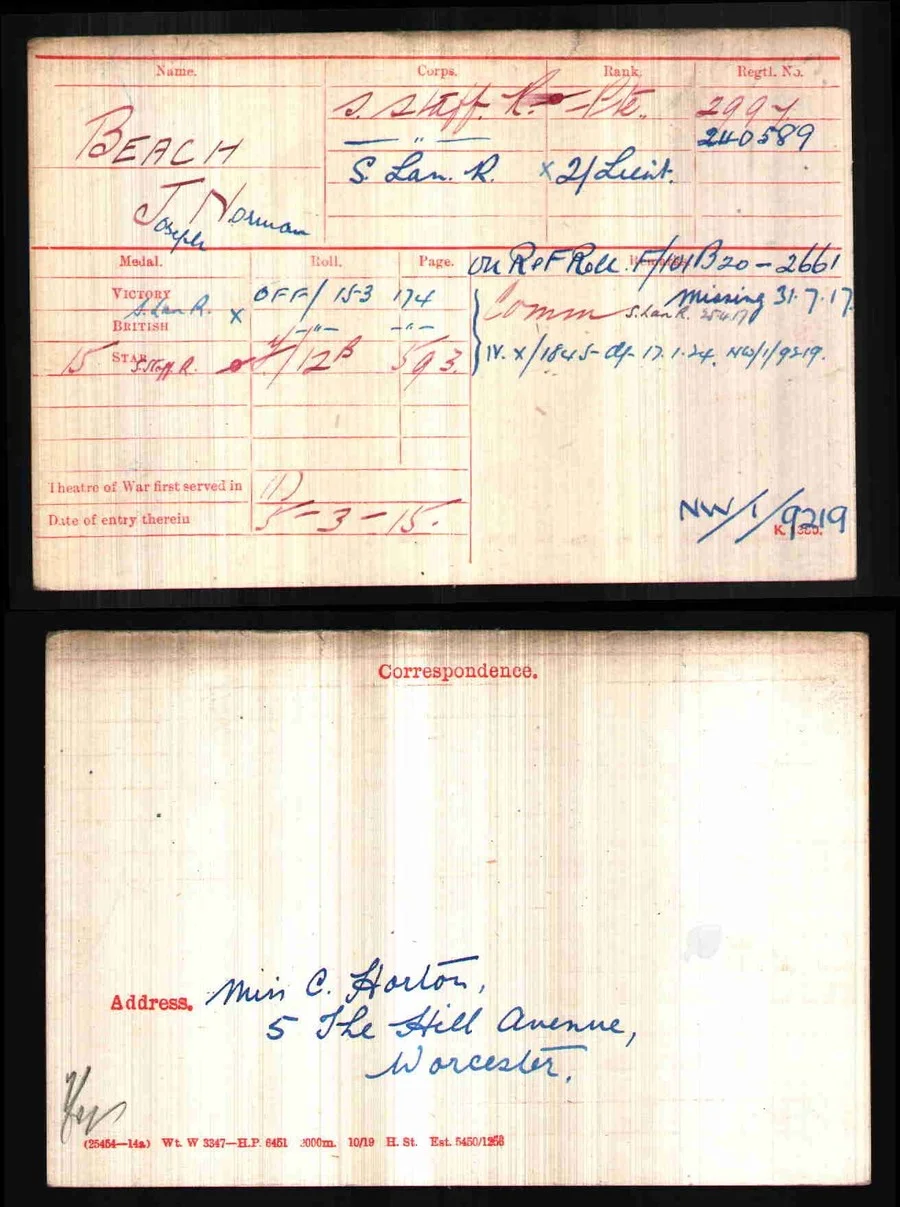 Name. Corps. Rank. Regtl. No.
BEACH S. Staff. R. Pte. 2997
— " — 240589
S. Lan. R. x 2/Lieut.
Joseph Norman
Medal. Roll. Page. On R of F Roll. F/101B20-2661
VICTORY OFF/153 174 Missing 31.7.17.
S. Lan R. x Comm S. Lan R. 25.4.17
BRITISH —"— —"—
15 STAR S. Staff. R. /12B 593. IV. X/1845- d/- 17.1.24. NW/1/9219.
Theatre of War first served in (1)
Date of entry therein 5-3-15.
NW/1/9219
K. 1380.
Correspondence.
Address. Miss C. Horton,
5 The Hill Avenue,
Worcester.
(25454—14a) Wt. W 3347—H.P. 6451 3000m. 10/19 H. St. Est. 5450/1256